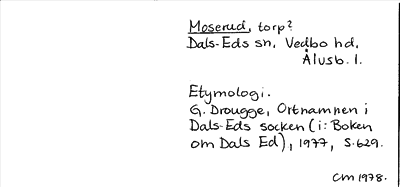 Moserud, torp?
Dals-Eds sn, Vedbo hd,
Älvsb. l.
Etymologi.
G. Drougge, Ortnamnen i
Dals-Eds socken (i: Boken
om Dals Ed), 1977, s. 629.
CM 1978.